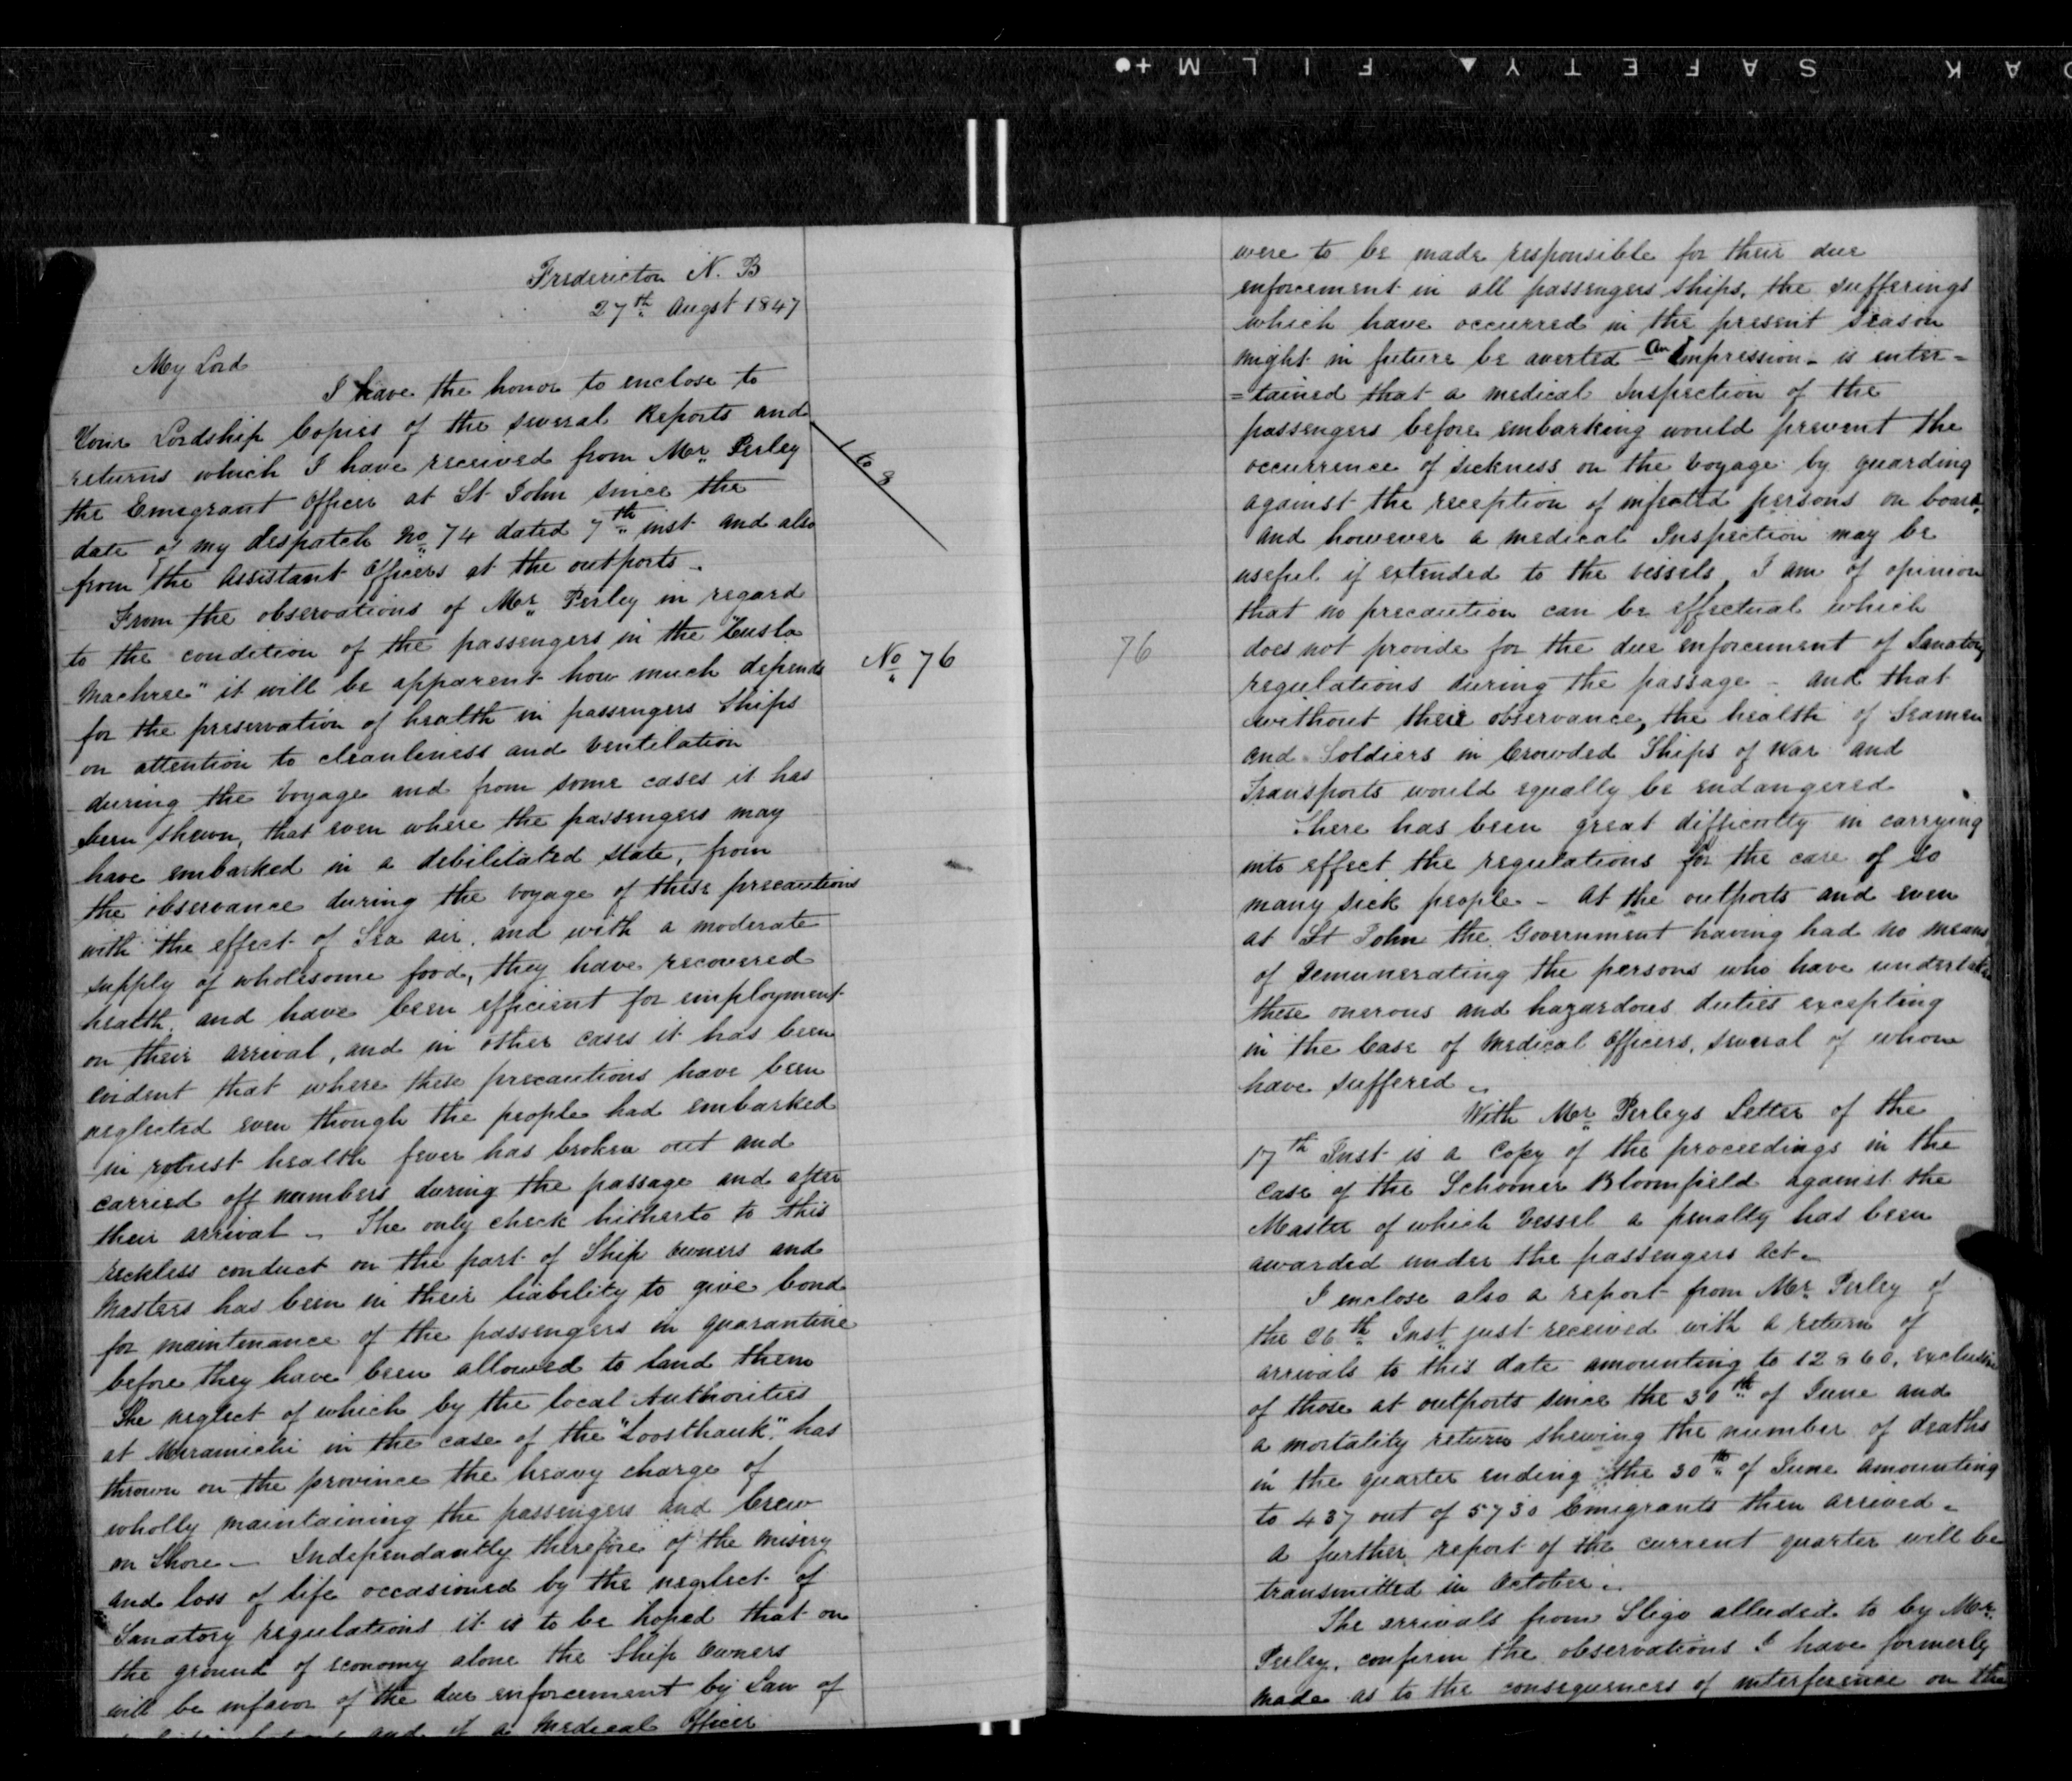 SAFETY ▲ FILM +●
Fredericton N. B
27th Augst 1847
My Lord
I have the honor to enclose to
Your Lordship Copies of the several Reports and
returns which I have received from Mr. Perley
the Emigrant Officer at St John since the
date of my despatch No 74 dated 7th inst and also
from the Assistant Officers at the outports.
1 to 8
From the observations of Mr. Perley in regard
to the condition of the passengers in the "Cusla
Machree" it will be apparent how much depends
No 76
for the preservation of health in passengers Ships
on attention to cleanliness and Ventilation
during the Voyage and from some cases it has
been shewn, that even where the passengers may
have embarked in a debilitated state, from
the observance during the voyage of these precautions
with the effect of Sea air, and with a moderate
supply of wholesome food, they have recovered
health, and have been efficient for employment
on their arrival, and in other cases it has been
evident that where these precautions have been
neglected even though the people had embarked
in robust health fever has broken out and
carried off numbers during the passage and after
their arrival - The only check hitherto to this
reckless conduct on the part of Ship owners and
Masters has been in their liability to give bond
for maintenance of the passengers in quarantine
before they have been allowed to land them
The neglect of which by the local Authorities
at Miramichi in the case of the "Loosthauk". has
thrown on the province the heavy charge of
wholly maintaining the passengers and Crew
on Shore - Independantly therefore of the misery
and loss of life occasioned by the neglect of
Sanatory regulations it is to be hoped that on
the ground of economy alone the Ship Owners
will be infavor of the due enforcement by Law of
and if a Medical Officer
were to be made responsible for their due
enforcement in all passengers Ships, the sufferings
which have occurred in the present season
might in future be averted - An Impression - is enter=
=tained that a medical Inspection of the
passengers before embarking would prevent the
occurrence of sickness on the voyage by guarding
against the reception of infected persons on board,
and however a medical Inspection may be
useful if extended to the vessels, I am of opinion
that no precaution can be effectual which
76
does not provide for the due enforcement of Sanatory
regulations during the passage - and that
without their observance, the health of Seamen
and Soldiers in Crowded Ships of War and
Transports would equally be endangered
There has been great difficulty in carrying
into effect the regulations for the care of so
many sick people - At the outports and even
at St John the Government having had no means
of Remunerating the persons who have undertaken
these onerous and hazardous duties excepting
in the Case of Medical Officers, several of whom
have suffered.
With Mr. Perleys Letter of the
17th Inst is a Copy of the proceedings in the
Case of the Schooner Bloomfield against the
Master of which Vessel a penalty has been
awarded under the passengers Act.
I enclose also a report from Mr. Perley of
the 26th Inst just received with a return of
arrivals to this date amounting to 12860, exclusive
of those at outports since the 30th of June and
a mortality return shewing the number of deaths
in the quarter ending the 30th of June amounting
to 437 out of 5730 Emigrants then arrived.
a further report of the current quarter will be
transmitted in October.
The arrivals from Sligo alluded to by Mr.
Perley, confirm the observations I have formerly
made as to the consequences of interference on the